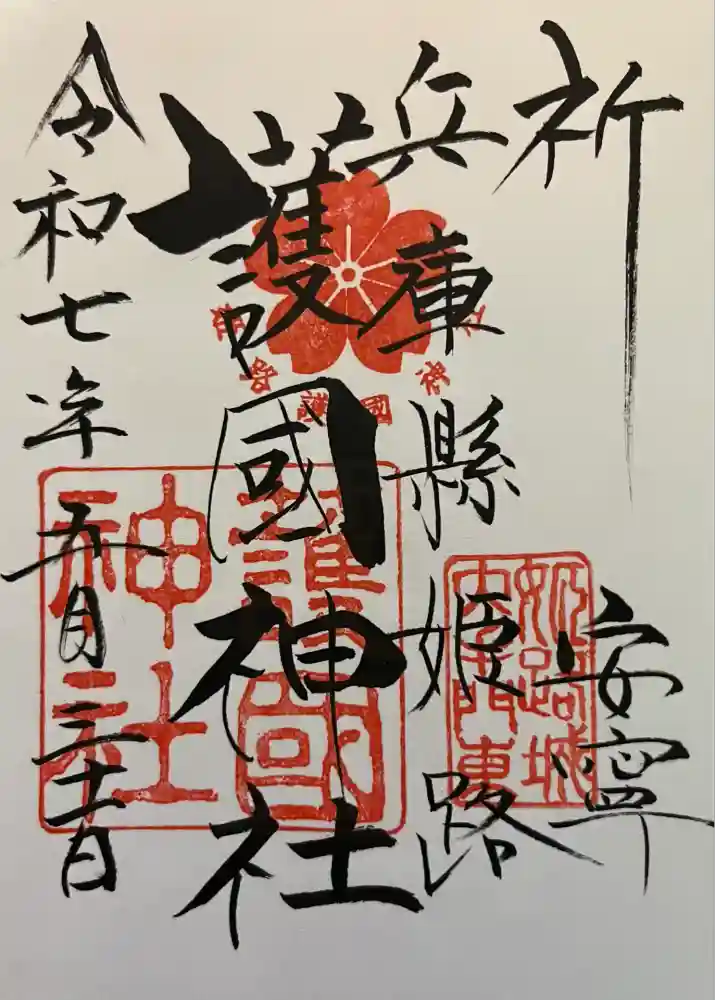 祈 安寧
兵庫縣姫路
護國神社
令和七年五月三十一日
姫路護國神社
姫路城
大手門東
護國
神社